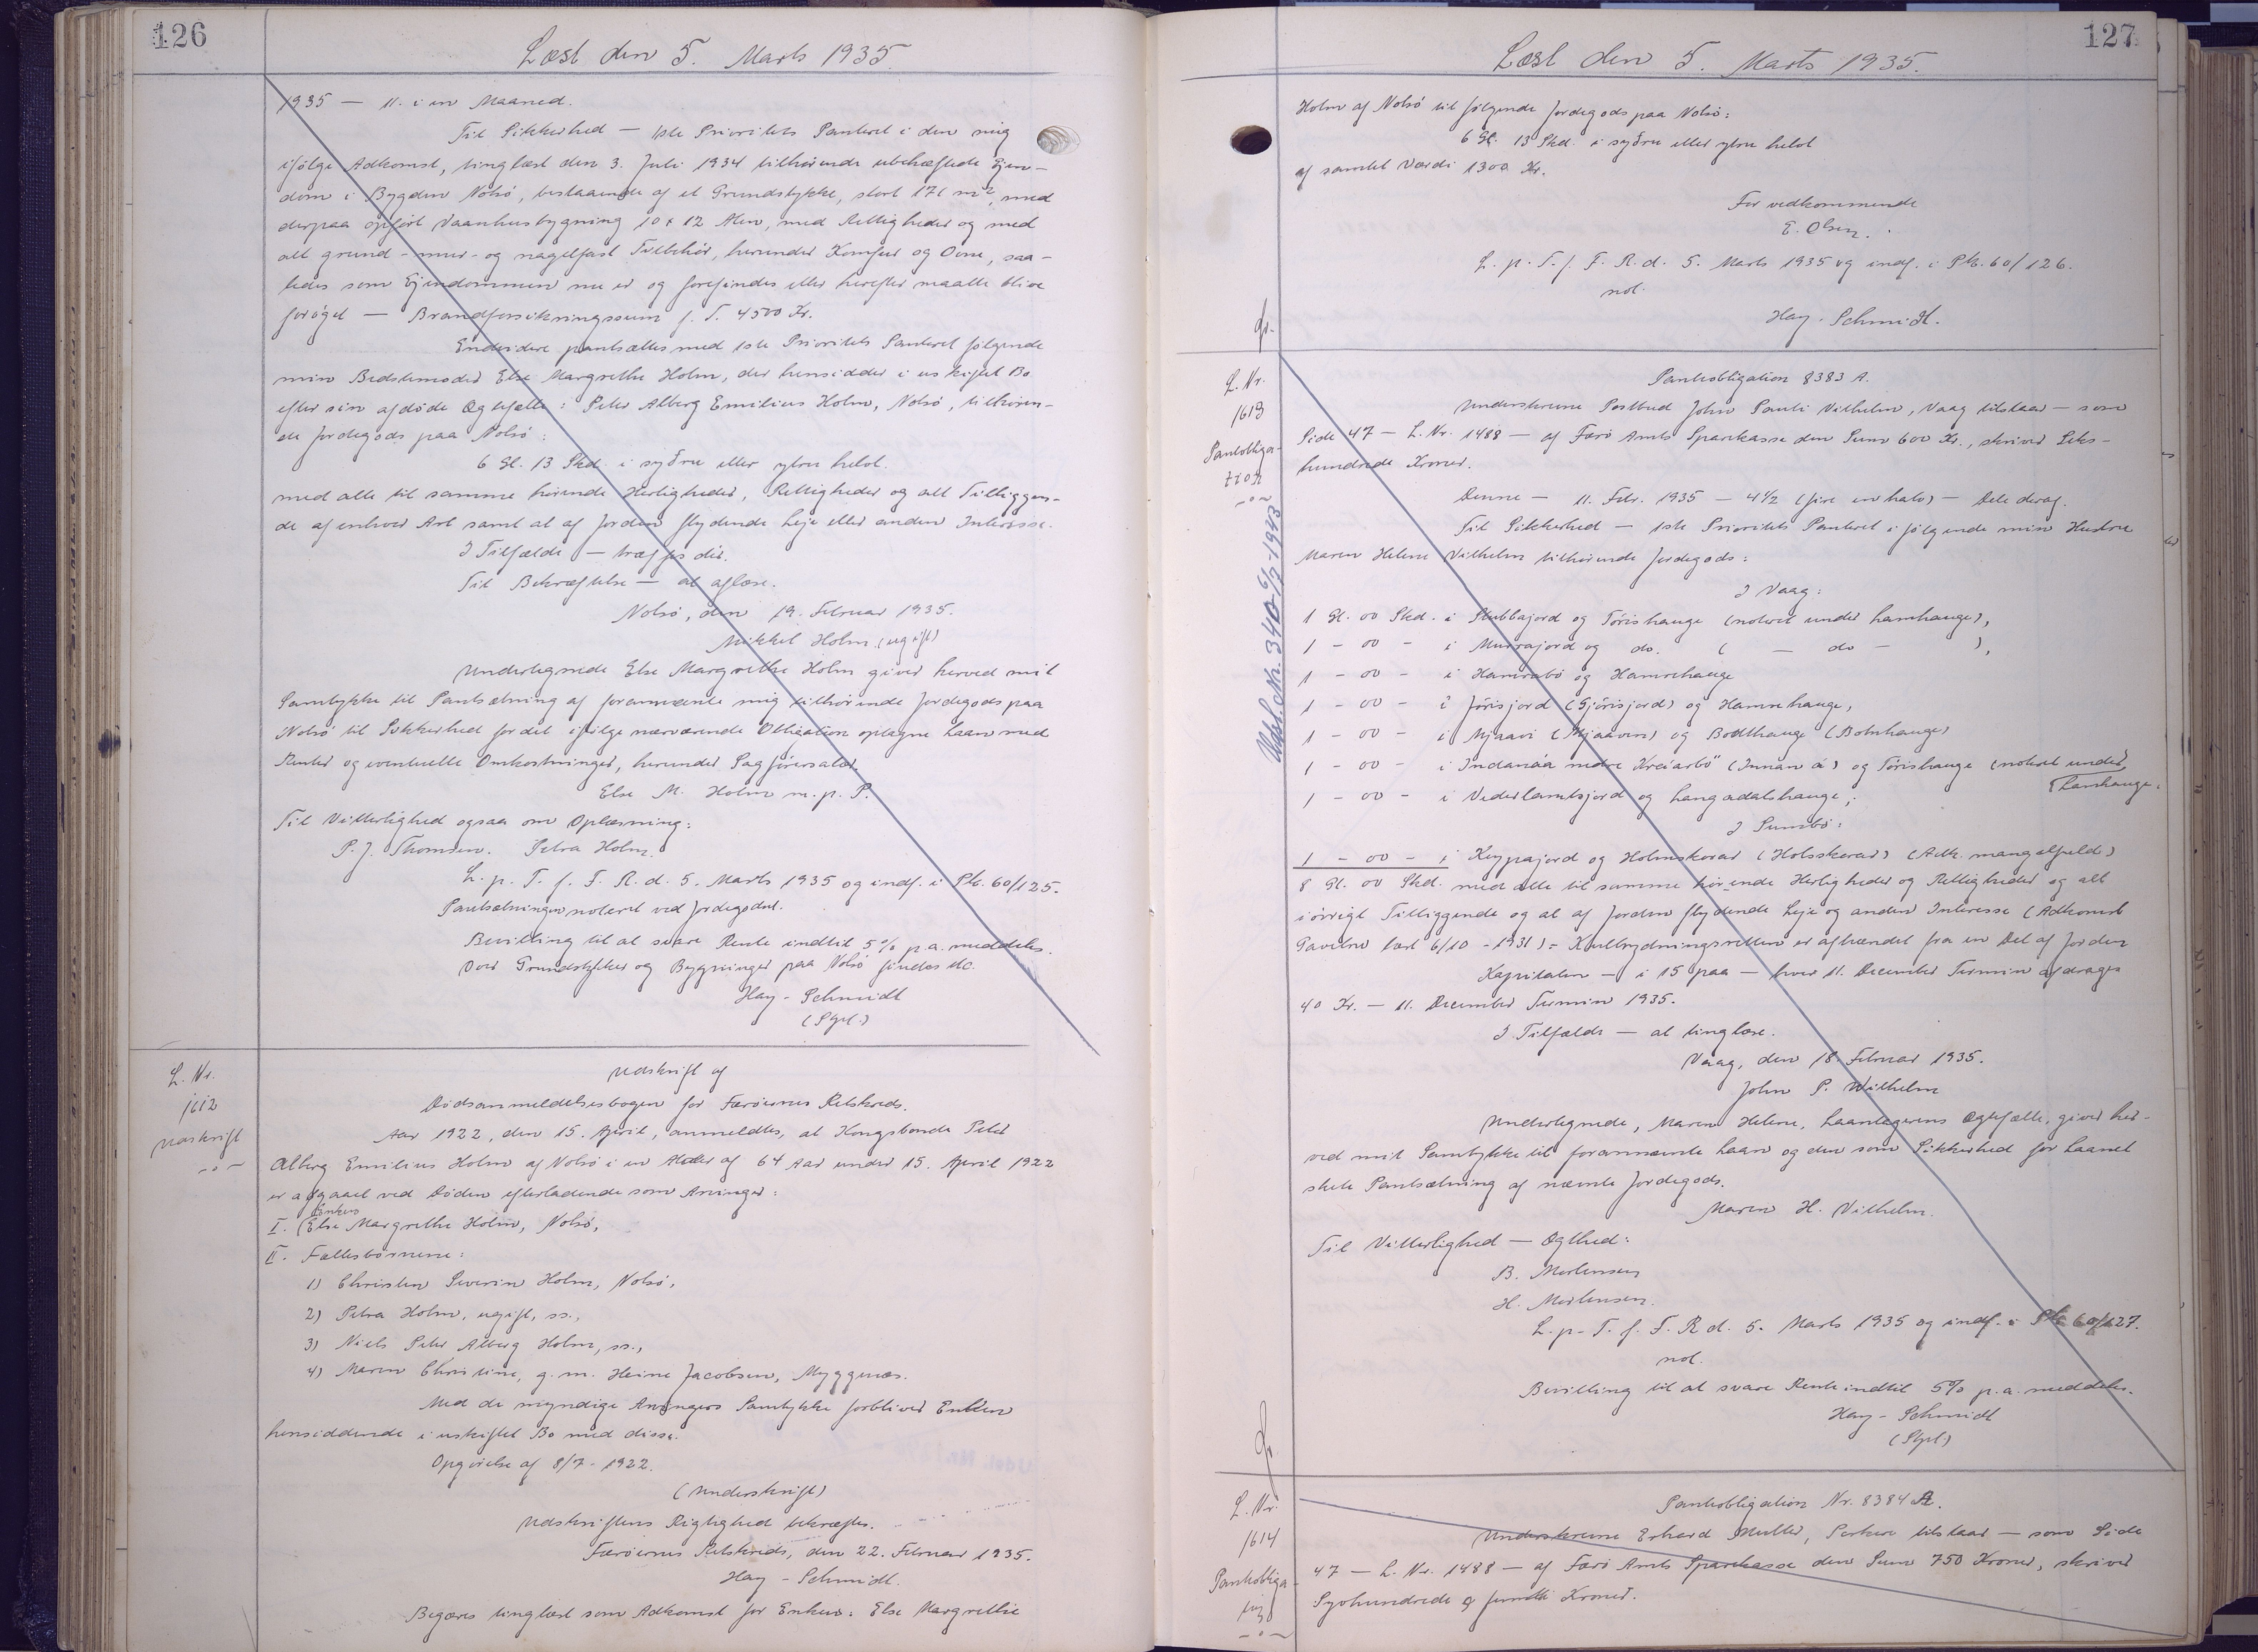 126
Læst den 5. Marts 1935.
1935 — 11. i en Maaned.
Til Sikkerhed — 1ste Prioritets Panteret i den mig
ifølge Adkomst, tinglæst den 3. Juli 1934 tilhørende ubehæftede Ejen-
dom i Bygden Nolsö, bestaaende af et Grundstykke, stort 171 m², med
derpaa opført Vaanhusbygning 10 x 12 Alen, med Rettigheder og med
alt grund- mur- og nagelfast Tilbehör, herunder Komfur og Ovne, saa-
ledes som Ejendommen nu er og forefindes eller herefter maatte blive
forøget — Brandforsikringssum f. T. 4500 Kr.
Endvidere pantsættes med 1ste Prioritets Panteret følgende
min Bedstemoder Else Margrethe Holm, der hensidder i uskiftet Bo
efter sin afdöde Ægtefælle: Peter Alberg Emilius Holm, Nolsö, tilhøren-
de Jordegods paa Nolsö:
6 Gl. 13 Skd. i syðru eller ytru helvt.
med alle til samme hørende Herligheder, Rettigheder og alt Tilliggen-
de af enhver Art samt al af Jorden flydende Leje eller anden Interesse.
I Tilfælde — træffes dér.
Til Bekræftelse — at aflæse.
Nolsö, den 19. Februar 1935.
Mikkel Holm (ugift)
Undertegnede Else Margrethe Holm giver herved mit
Samtykke til Pantsætning af forannævnte mig tilhörende Jordegods paa
Nolsö til Sikkerhed for det ifölge nærværende Obligation optagne Laan med
Renter og eventuelle Omkostninger, herunder Sagförersalær.
Else M. Holm m. p. P.
Til Vitterlighed ogsaa om Oplæsning:
P. J. Thomsen. Petra Holm.
L. p. T. f. F. R. d. 5. Marts 1935 og indf. i Pb. 60/125.
Pantsætningen noteret ved Jordegodset.
Bevilling til at svare Rente indtil 5% p.a. meddeles.
Over Grundstykker og Bygninger paa Nolsö findes
Hay-Schmidt
(Spl.)
L. Nr.
1612
Udskrift
-o-
Udskrift af
Dödsanmeldelsesbogen for Færøernes Retskreds.
Aar 1922, den 15. April, anmeldtes, at Kongsbonde Peter
Alberg Emilius Holm af Nolsö i en Alder af 64 Aar under 15. April 1922
er afgaaet ved Döden efterladende som Arvinger:
Enken
I. Else Margrethe Holm, Nolsö,
II. Fællesbörnene:
1) Christen Severin Holm, Nolsö,
2) Petra Holm, ugift, ss.,
3) Niels Peter Alberg Holm, ss.,
4) Maren Christine, g. m. Heine Jacobsen, Myggenæs.
Med de myndige Arvingers Samtykke forbliver Enken
hensiddende i uskiftet Bo med disse.
Opgörelse af 8/7 - 1922.
(Underskrift)
Udskriftens Rigtighed bekræftes.
Færøernes Retskreds, den 22. Februar 1935.
Hay-Schmidt.
Begæres tinglæst som Adkomst for Enken: Else Margrethe
127
Læst den 5. Marts 1935.
Holm af Nolsö til følgende Jordegods paa Nolsö:
6 Gl. 13 Skd. i syðru eller ytru helvt
af samlet Værdi 1300 Kr.
For vedkommende
E. Olsen.
L. p. T. f. F. R. d. 5. Marts 1935 og indf. i Pb. 60/126.
not.
Hay-Schmidt.
L. Nr.
1613
Pantobliga-
tion
-o-
Udsl. Nr. 340 - 6/7-1943
Pantobligation 8383 A.
Underskrevne Postbud John Pauli Vilhelm, Vaag tilstaar — som
Side 47 — L. Nr. 1488 — af Færö Amts Sparekasse den Sum 600 Kr., skriver Seks-
hundrede Kroner.
Denne — 11. Febr. 1935 — 4½ (fire en halv) — Dele deraf.
Til Sikkerhed — 1ste Prioritets Panteret i følgende min Hustru
Maren Helene Vilhelm tilhörende Jordegods:
I Vaag:
1 Gl. 00 Skd. i Stubbajord og Tórishauge (noteret under hamhauge),
1 - 00 - i Murrajord og do. ( — do — ),
1 - 00 - i Hamrabö og Hamrehauge
1 - 00 - i Jórisjord (Gjórisjord) og Hamrehauge,
1 - 00 - i Mjaavi (Mjaavin) og Bodlhauge (Botnhauge)
1 - 00 - i Indanáa nedre Kráarbö (Innan á) og Tórishauge (noteret under
hamhauge.
1 - 00 - i Vederlamtsjord og Langadalshauge,
I Sumbö:
1 - 00 - i Keypajord og Holmskorar (Holsskorar) (Adk. mangelfuld)
8 Gl. 00 Skd. med alle til samme hörende Herligheder og Rettigheder og alt
iövrigt Tilliggende og al af Jorden flydende Leje og anden Interesse (Adkomst
Gavebrev læst 6/10 - 1931) = Kultbrydningsretten er afhændet fra en Del af Jorden
Kapitalen — i 15 paa — hver 11. December Termin afdrages
40 Kr. — 11. December Termin 1935.
I Tilfælde — at tinglæse.
Vaag, den 18. Februar 1935.
John P. Wilhelm
Undertegnede, Maren Helene, Laantagerens Ægtefælle, giver her-
ved mit Samtykke til forannævnte Laan og den som Sikkerhed for Laanet
skete Pantsætning af nævnte Jordegods.
Maren H. Vilhelm.
Til Vitterlighed — Ægthed:
B. Mortensen
H. Mortensen.
L. p. T. f. F. R. d. 5. Marts 1935 og indf. i Pb. 60/127.
not.
Bevilling til at svare Rente indtil 5% p.a. meddeles.
Hay-Schmidt
(Spl)
L. Nr.
1614
Pantobliga-
tion
-o-
Pantobligation Nr. 8384 A.
Underskrevne Erhard Müller, Porkere tilstaar — som Side
47 — L. Nr. 1488 — af Færö Amts Sparekasse den Sum 750 Kroner, skriver
Syvhundrede og femti Kroner.